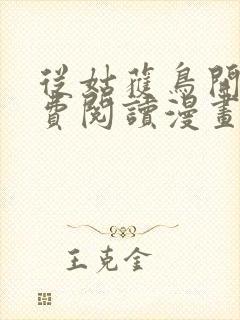 從姑獲鳥開
費閱讀漫畫
王克金